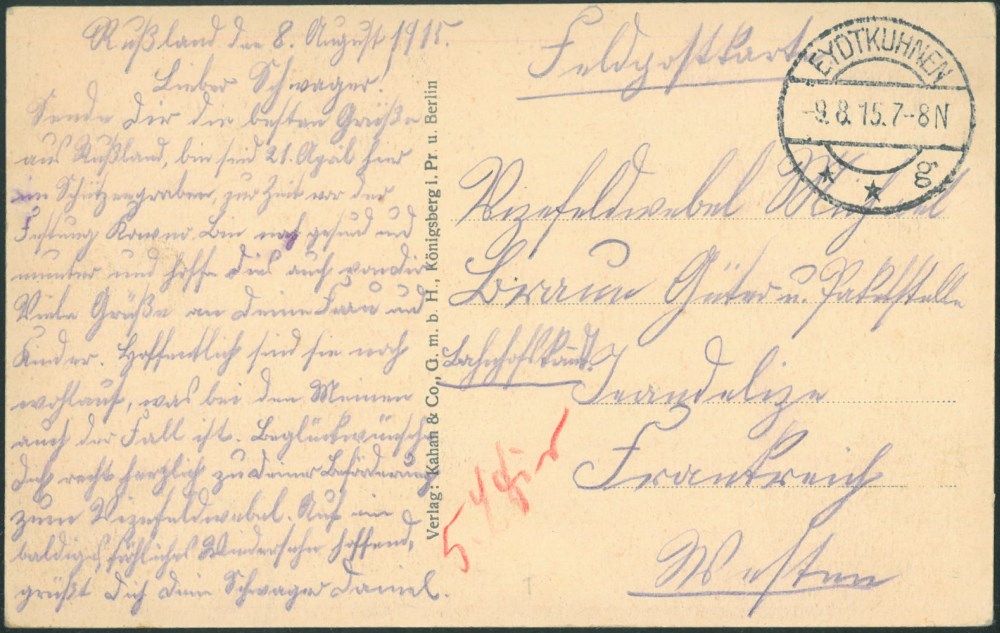 Rußland den 8. August 1915.
Lieber Schwager!
Sende Dir die besten Grüße
aus Rußland, bin seid 21. April hier
im Schützengraben, zur Zeit vor der
Festung Kowno. Bin noch gesund und
munter und hoffe dies auch von Dir
Viele Grüße an Deine Frau und
Kinder. Hoffentlich sind sie noch
wohlauf, was bei den Meinen
auch der Fall ist. Beglückwünsche
Dich recht herzlich zu Deiner Beförderung
zum Vizefeldwebel. Auf ein
baldiges, fröhliches Wiedersehn hoffend,
grüßt Dich Dein Schwager Daniel.
Verlag: Kahan & Co., G. m. b. H., Königsberg i. Pr. u. Berlin
Feldpostkarte
EYDTKUHNEN
-9.8.15.7-8N
* *
Vizefeldwebel
Braun Güter u. Paketstelle
Jeandelize
Frankreich
Westen